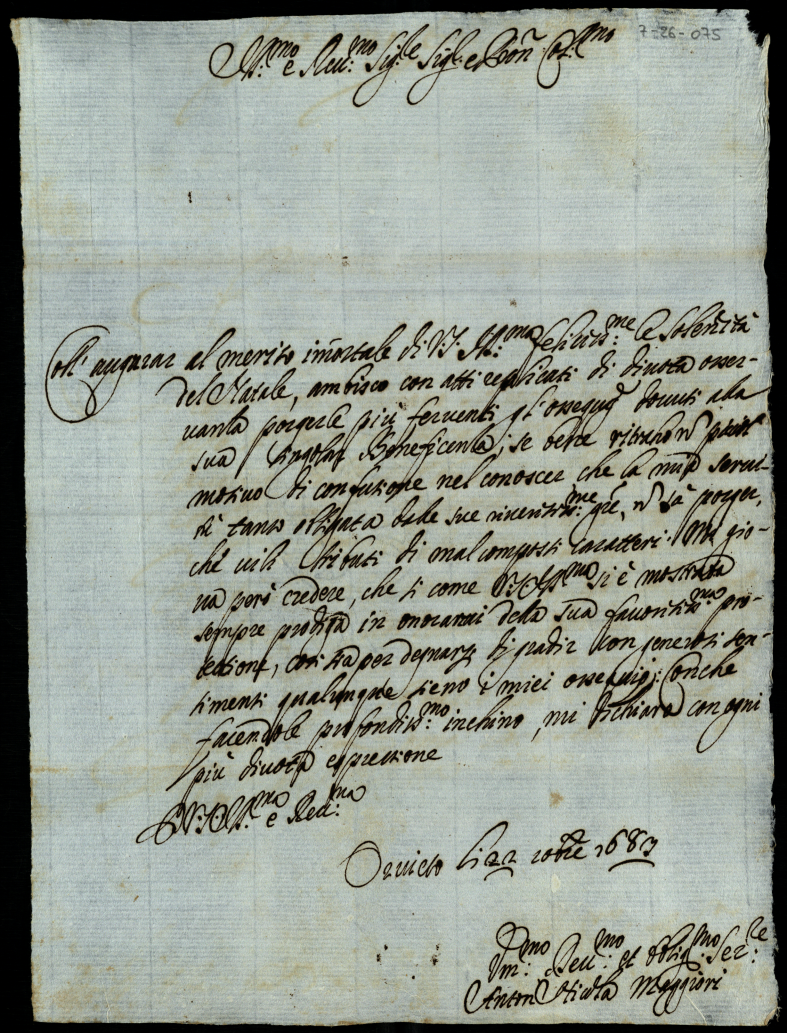 7-26-075
Ill:mo e Reu:mo Sig:re Sig:r e Pron Col:mo
Coll' augurar al merito im̃ortale di V.S. Ill:ma feliciss:me le Solen̄ità
del Natale, ambisco con atti replicati di diuota osser-
uanza porgerle più feruenti gl' ossequij douuti alla
sua singolar Beneficenza; se bene ritraho ñ picciol
motiuo di confusione nel conoscer che la mia serui-
tù tanto obligata dalle sue riueritiss:me gr̃e, ñ sà porger,
che uili tributi di mal composti caratteri. Mi gio-
ua però credere, che si come V.S. Ill:ma si è mostrata
sempre prodiga in onorarmi della sua fauoritiss:ma pro-
tezione, così sia per degnarsi di gradir con generosi sen-
timenti qualunque sieno i miei ossequij; Conche
facendole profondiss:mo inchino, mi dichiaro con ogni
più diuota espressione
D V.S. Ill:ma e Reu:ma
Oruieto li 22 xbre 1683
Vm:mo Deu:mo et oblig:mo Ser:re
Anton Nicola Maggiori